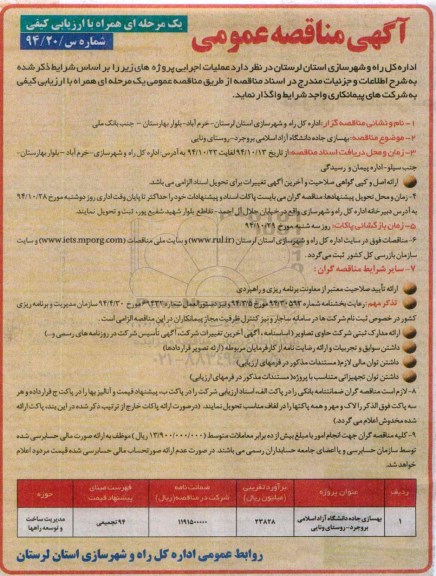 آگهی مناقصه عمومی
یک مرحله ای همراه با ارزیابی کیفی
شماره س/۹۴/۲۰
اداره کل راه و شهرسازی استان لرستان در نظر دارد عملیات اجرایی پروژه های زیر را بر اساس شرایط ذکر شده
به شرح اطلاعات و جزئیات مندرج در اسناد مناقصه از طریق مناقصه عمومی یک مرحله ای همراه با ارزیابی کیفی
به شرکت های پیمانکاری واجد شرایط واگذار نماید.
۱- نام و نشانی مناقصه گزار: اداره کل راه و شهرسازی استان لرستان-خرم آباد-بلوار بهارستان - جنب بانک ملی
۲- موضوع مناقصه: بهسازی جاده دانشگاه آزاد اسلامی بروجرد-روستای ونایی
۳- زمان و محل دریافت اسناد مناقصه: از تاریخ ۹۴/۱۰/۱۳ لغایت ۹۴/۱۰/۲۳ به آدرس: اداره کل راه و شهرسازی-خرم آباد-بلوار بهارستان-
جنب سیلو-اداره پیمان و رسیدگی
ارائه اصل و کپی گواهی صلاحیت و آخرین آگهی تغییرات برای تحویل اسناد الزامی می باشد.
۴- زمان و محل تحویل پیشنهادها: مناقصه گران می بایست پاکات اسناد و پیشنهادات خود را حداکثر تا پایان وقت اداری روز دوشنبه مورخ ۹۴/۱۰/۲۸
به آدرس دبیرخانه اداره کل راه و شهرسازی واقع در خیابان جلال آل احمد- تقاطع بلوار شهید شفیع پور، ثبت و تحویل نمایند.
۵- زمان بازگشائی پاکات: روز سه شنبه مورخ ۹۴/۱۰/۲۹
۶- مناقصات فوق در سایت اداره کل راه و شهرسازی استان لرستان (www.rul.ir) و سایت ملی مناقصات (www.iets.mporg.com) و سایت
سازمان بازرسی کل کشور ثبت می گردد.
۷- سایر شرایط مناقصه گران:
ارائه تأیید صلاحیت معتبر از معاونت برنامه ریزی و راهبردی
تذکر مهم: رعایت بخشنامه شماره ۹۴/۳۰۵۹۳ مورخ ۹۴/۳/۵ و نیز دستورالعمل شماره ۶۹۴۳۲ مورخ ۹۴/۴/۳۰ سازمان مدیریت و برنامه ریزی
کشور در خصوص ثبت نام شرکت ها در سامانه ساجار و نیز کنترل ظرفیت مجاز پیمانکاران در این مناقصه الزامی است.
ارائه مدارک ثبتی شرکت حاوی تصاویر (اساسنامه، آگهی آخرین تغییرات شرکت، آگهی تأسیس شرکت در روزنامه های رسمی و...)
داشتن سوابق و تجربیات و ارائه رضایت نامه از کارفرمایان مربوطه (ارائه تصویر قراردادها)
داشتن توان مالی لازم (مستندات مذکور در فرمهای ارزیابی)
داشتن توان تجهیزاتی متناسب با پروژه (مستندات مذکور در فرمهای ارزیابی)
۸- لازم است مناقصه گران ضمانتنامه بانکی را در پاکت الف، اسناد ارزیابی شرکت را در پاکت ب، پیشنهاد قیمت و آنالیز بها را در پاکت ج قرار داده و هر
سه پاکت فوق الذکر را لاک و مهر و همه پاکتها را در لفاف مناسب تحویل نمایند. (در صورت ارائه پاکات خارج از ترتیب ذکر شده در این بند، پاکت ارائه
شده مخدوش اعلام می گردد)
۹- کلیه مناقصه گران جهت انجام امور با مبلغ بیش از ده برابر معاملات متوسط (۱۳/۹۰۰/۰۰۰/۰۰۰ ریال) موظف به ارائه صورت مالی حسابرسی شده
توسط سازمان حسابرسی و یا اعضای جامعه حسابداران رسمی می باشند. در صورت عدم ارائه صورتحساب مالی حسابرسی شده قیمت مردود اعلام
خواهد شد.
ردیف عنوان پروژه برآورد تقریبی (میلیون ریال) ضمانت نامه شرکت در مناقصه (ریال) فهرست مبنای پیشنهاد قیمت حوزه
۱ بهسازی جاده دانشگاه آزاد اسلامی بروجرد-روستای ونایی ۲۳۸۲۸ ۱۱۹۱۵۰۰۰۰۰ ۹۴ تجمیعی مدیریت ساخت و توسعه راهها
روابط عمومی اداره کل راه و شهرسازی استان لرستان